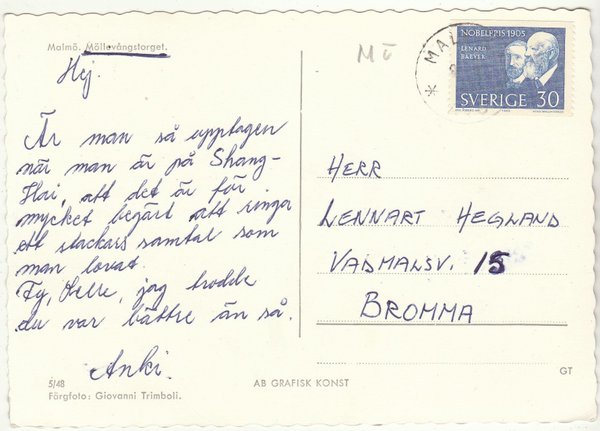 Malmö. Möllevångstorget.
Hej.
Är man så upptagen
när man är på Shang-
Hai, att det är för
mycket begärt att ringa
ett stackars samtal som
man lovat.
Fy, Lelle, jag trodde
du var bättre än så.
Anki.
5/48
Färgfoto: Giovanni Trimboli.
AB GRAFISK KONST
M
MAL
NOBELPRIS 1905
LENARD
BAEYER
SVERIGE 30
HERR
LENNART HEGLAND
VADMALSV. 15
BROMMA
GT